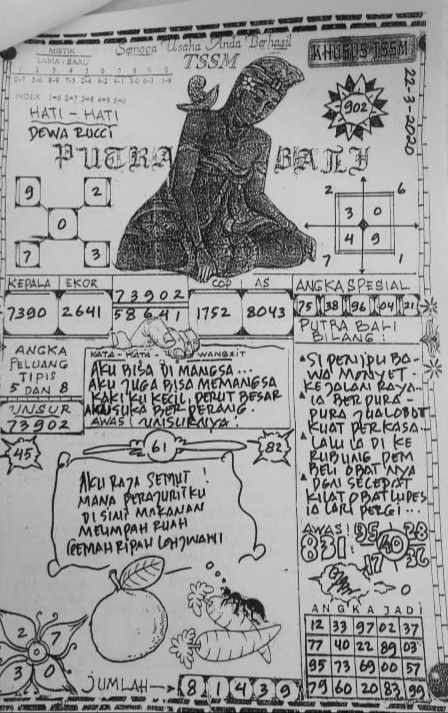 MISTIK
LAMA - BARU
Semoga Usaha Anda Berhasil
TSSM
KHUSUS TSSM
22-3-2020
902
HATI - HATI
DEWA RUCCI
PUTRA BALI
9 2
0
7 3
2 6
3 0
4 9
7 1
KEPALA EKOR
7390 2641
73902
58641
COP AS
1752 8043
ANGKA SPESIAL
75 38 96 04 21
ANGKA
PELUANG
TIPIS
5 DAN 8
UNSUR
73902
KATA - KATA WANGSIT
AKU BISA DI MANGSA...
AKU JUGA BISA MEMANGSA
KAKI KU KECIL, PERUT BESAR
AKU SUKA BERPERANG.
AWAS! UNSURNYA!
PUTRA BALI
BILANG:
SI PENIPU BA-
WA MONYET.
KE JALAN RAYA...
IA BERPURA-
PURA JUAL OBAT
KUAT PERKASA..
LALU IA DI KE
RUBUNG DEM
BELI OBATNYA
DGN SECEPAT
KILAT OBAT LUDES
IA LARI PERGI...
45
61
82
AKU RAJA SEMUT!
MANA PERAJURITKU
DI SINI MAKANAN
MELIMPAH RUAH
GEMAH RIPAH LOH JINAWI
AWAS!
831:
95 28
40
17 36
2 7
3 0
JUMLAH → 8 1 4 3 9
ANGKA JADI
12 33 97 02 37
77 40 22 89 03
95 73 69 00 57
79 60 20 83 99